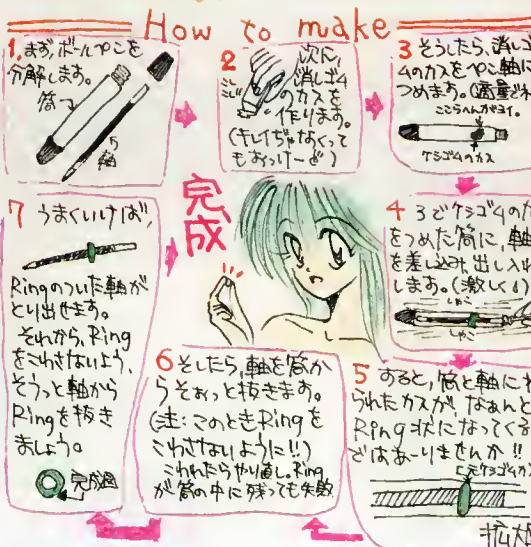 How to make
1. まず、ボールペンを
分解します。
筒
軸
2 次に
消しゴム
のカスを
作ります。
(キレイぢゃなくって
もおっけーよ)
3 そうしたら、消しゴ
ムのカスをペン軸に
つめます。(適量
ここらへんがヨイ。
ケシゴムのカス
4 3でケシゴムのカ
をつめた筒に、軸
を差し込み、出し入れ
します。(激しく!)
しゃこ
しゃこ
5 すると、筒と軸に
られたカスが、なぁんと
Ring状になってくる
ではあーりませんか!!
元ケシゴムカ
拡大
6 そしたら、軸を筒か
らそぉっと抜きます。
(注:このときRingを
こわさないように!!)
こわれたらやり直し。Ring
が筒の中に残っても失敗
7 うまくいけば、
Ringのついた軸が
とり出せます。
それから、Ring
をこわさないよう、
そうっと軸から
Ringを抜き
ましょう。
完成図
完成